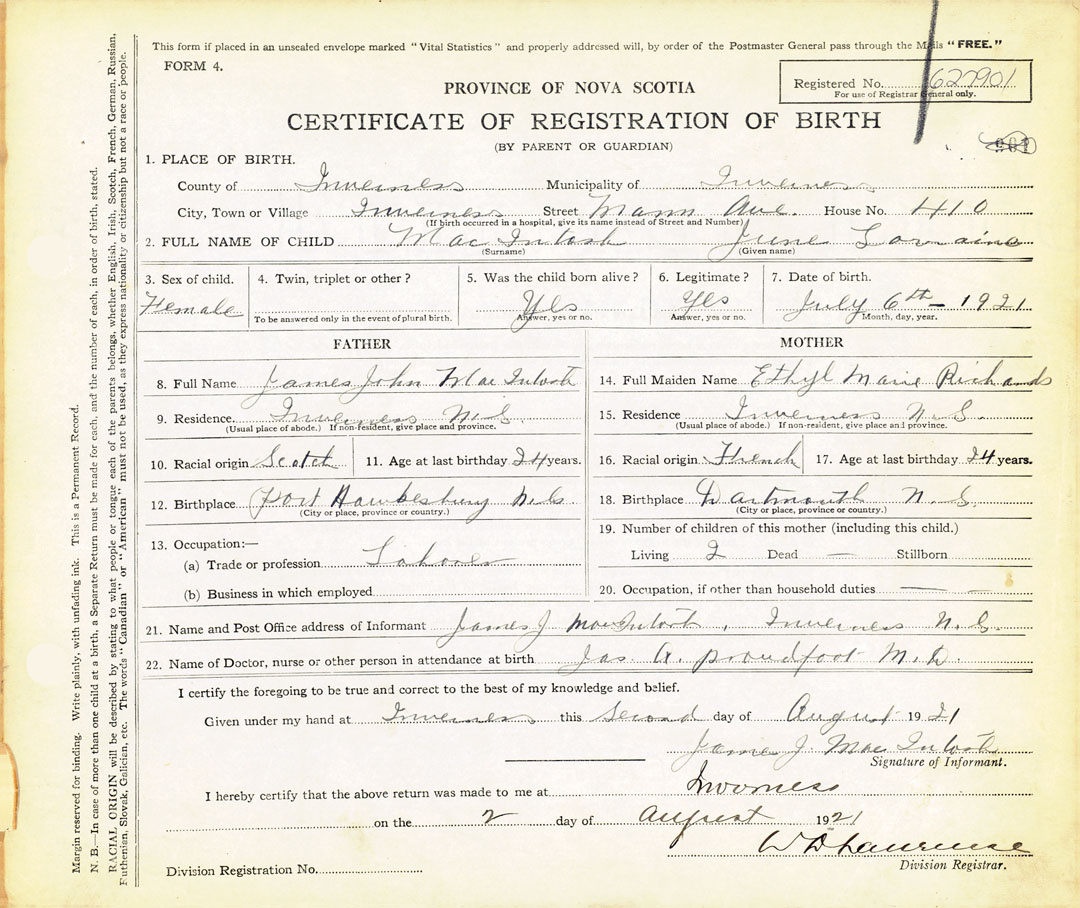 This form if placed in an unsealed envelope marked "Vital Statistics" and properly addressed will, by order of the Postmaster General pass through the Mails "FREE."
FORM 4.
Registered No. 627901
For use of Registrar General only.
PROVINCE OF NOVA SCOTIA
CERTIFICATE OF REGISTRATION OF BIRTH
(BY PARENT OR GUARDIAN)
1. PLACE OF BIRTH.
County of Inverness Municipality of Inverness
City, Town or Village Inverness Street Mann Ave. House No. 410
(If birth occurred in a hospital, give its name instead of Street and Number)
2. FULL NAME OF CHILD MacIntosh June Lorraine
(Surname) (Given name)
3. Sex of child. 4. Twin, triplet or other? 5. Was the child born alive? 6. Legitimate? 7. Date of birth.
Female Yes Yes July 6th - 1921
To be answered only in the event of plural birth. Answer, yes or no. Answer, yes or no. Month, day, year.
FATHER
8. Full Name James John MacIntosh
9. Residence Inverness N.S.
(Usual place of abode.) If non-resident, give place and province.
10. Racial origin Scotch 11. Age at last birthday 24 years.
12. Birthplace Port Hawkesbury N.S.
(City or place, province or country.)
13. Occupation:—
(a) Trade or profession Laborer
(b) Business in which employed
MOTHER
14. Full Maiden Name Ethyl Marie Richards
15. Residence Inverness N.S.
(Usual place of abode.) If non-resident, give place and province.
16. Racial origin French 17. Age at last birthday 24 years.
18. Birthplace Dartmouth N.S.
(City or place, province or country.)
19. Number of children of this mother (including this child.)
Living 2 Dead — Stillborn
20. Occupation, if other than household duties —
21. Name and Post Office address of Informant James J MacIntosh, Inverness N.S.
22. Name of Doctor, nurse or other person in attendance at birth Jas A. Proudfoot M.D.
I certify the foregoing to be true and correct to the best of my knowledge and belief.
Given under my hand at Inverness this Second day of August 1921
James J. MacIntosh
Signature of Informant.
I hereby certify that the above return was made to me at Inverness
on the 2 day of August 1921
W D Lawrence
Division Registrar.
Division Registration No.
Margin reserved for binding. Write plainly, with unfading ink. This is a Permanent Record.
N. B.—In case of more than one child at a birth, a Separate Return must be made for each, and the number of each, in order of birth, stated.
RACIAL ORIGIN will be described by stating to what people or tongue each of the parents belongs, whether English, Irish, Scotch, French, German, Russian,
Ruthenian, Slovak, Galician, etc. The words "Canadian" or "American" must not be used, as they express nationality or citizenship but not a race or people.